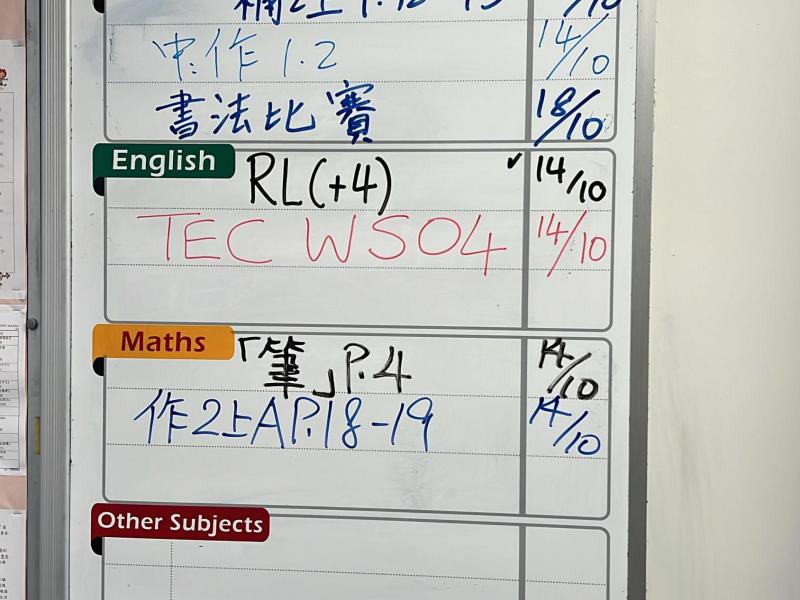 中.作 1.2 14/10
書法比賽 18/10
English
RL(+4) ✓ 14/10
TEC WS04 14/10
Maths
「筆」P.4 14/10
作2上A P.18-19 14/10
Other Subjects